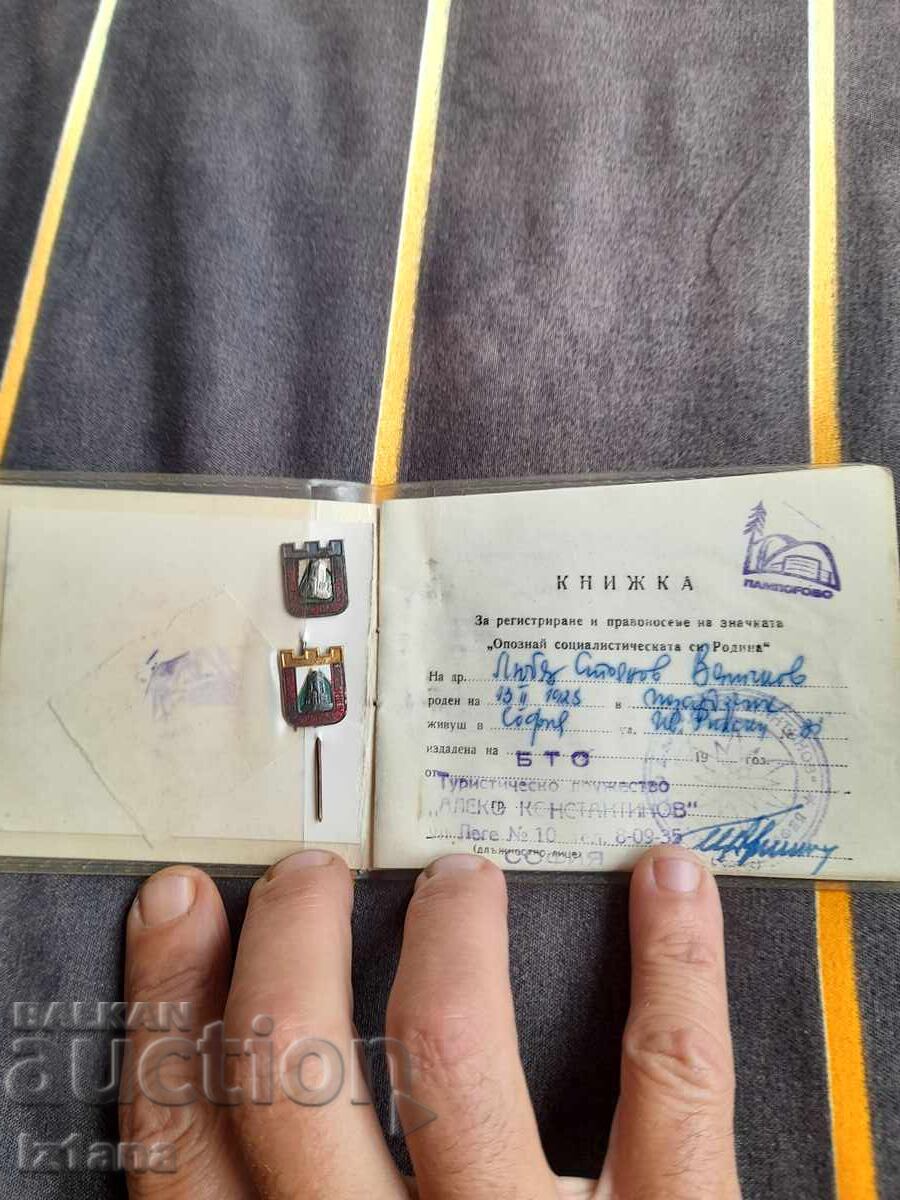 ПАМПОРОВО
КНИЖКА
За регистриране и правоносене на значката
„Опознай социалистическата си Родина"
На др. Стоянов Величков
роден на 13 II 1923 в
живущ в София ул. Ив. Рилски №
издадена на 19 год.
БТС
от Туристическо дружество
"АЛЕКО КОНСТАНТИНОВ"
гр.
ул. Леге № 10, тел. 8-09-35
(длъжностно лице)
СОФИЯ
BALKAN
auction
Iztana